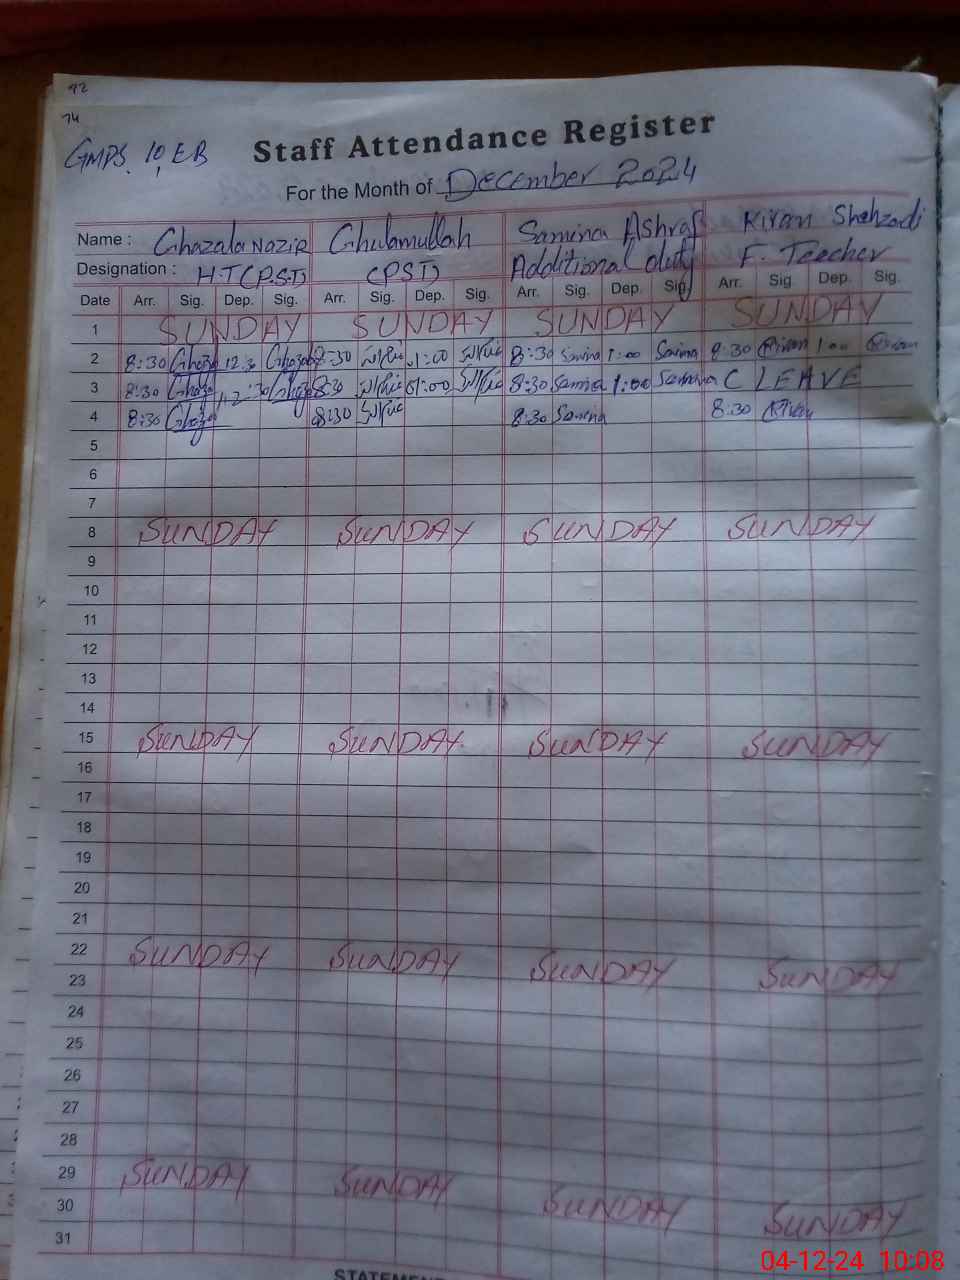 92
74
GMPS. 10, EB
Staff Attendance Register
For the Month of December 2024
Name : Ghazala Nazir Ghulamullah Samina Ashraf Kiran Shehzadi
Designation : H.T(P.S.T) (PST) Additional duty F. Teacher
Date Arr. Sig. Dep. Sig. Arr. Sig. Dep. Sig. Arr. Sig. Dep. Sig. Arr. Sig. Dep. Sig.
1 SUNDAY SUNDAY SUNDAY SUNDAY
2 8:30 Ghaza 12.30 Ghaza 8:30 1:00 8:30 Samina 1:00 Samina 8:30 Kiran 1:00 Kiran
3 8:30 Ghaza 12:30 Ghaza 8:30 01:00 8:30 Samina 1:00 Samina C LEAVE
4 8:30 Ghaza 8:30 8:30 Samina 8:30 Kiran
5
6
7
8 SUNDAY SUNDAY SUNDAY SUNDAY
9
10
11
12
13
14
15 SUNDAY SUNDAY SUNDAY SUNDAY
16
17
18
19
20
21
22 SUNDAY SUNDAY SUNDAY SUNDAY
23
24
25
26
27
28
29 SUNDAY SUNDAY SUNDAY SUNDAY
30
31
04-12-24 10:08